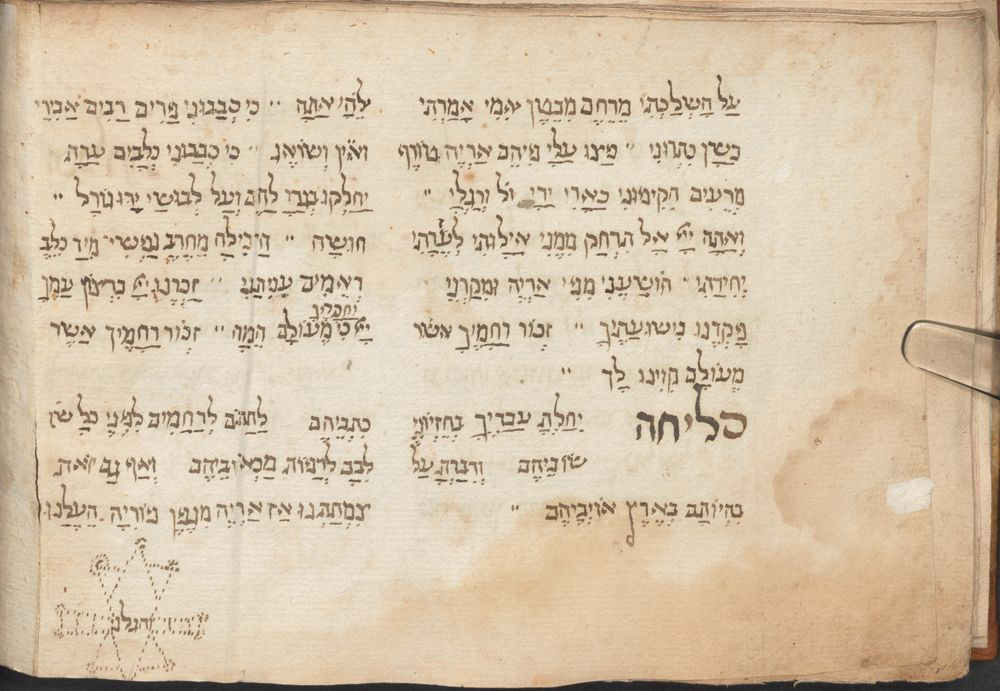 עַל הָשְׁלַכְתִּי מֵרֶחֶם מִבֶּטֶן אִמִּי אָמַרְתִּי אֵלִי אַתָּה ׃ כִּי סְבָבוּנִי פָּרִים רַבִּים אַבִּירֵי
בָשָׁן כִּתְּרוּנִי ׃ פָּצוּ עָלַי פִּיהֶם אַרְיֵה טוֹרֵף וְאֵין וְשׁוֹאֵג ׃ כִּי סְבָבוּנִי כְּלָבִים עֲדַת
מְרֵעִים הִקִּיפוּנִי כָּאֲרִי יָדַי וְרַגְלָי ׃ יְחַלְּקוּ בְגָדַי לָהֶם וְעַל לְבוּשִׁי יַפִּילוּ גוֹרָל ׃
וְאַתָּה יְיָ אַל תִּרְחָק מִמֶּנִּי אֱיָלוּתִי לְעֶזְרָתִי חוּשָׁה ׃ הַצִּילָה מֵחֶרֶב נַפְשִׁי מִיַּד כֶּלֶב
יְחִידָתִי ׃ הוֹשִׁיעֵנִי מִפִּי אַרְיֵה וּמִקַּרְנֵי רְאֵמִים עֲנִיתָנִי ׃ זָכְרֵנוּ יְיָ בִּרְצוֹן עַמֶּךָ
פָּקְדֵנוּ בִּישׁוּעָתֶךָ ׃ זְכוֹר רַחֲמֶיךָ אשר יְיָ וַחֲסָדֶיךָ כִּי מֵעוֹלָם הֵמָּה ׃ זְכוֹר רַחֲמֶיךָ אֲשֶׁר
מֵעוֹלָם קִוִּינוּ לָךְ ׃
סליחה יַחֲלַתָּ עֲבָדֶיךָ בְּחֶזְיוֹנֵי כִתְבֵיהֶם לְתִתָּם לְרַחֲמִים לִפְנֵי כָּל
שׁוֹבֵיהֶם וְדִבַּרְתָּ עַל לִבָּב לְרַפּוֹת מַכְאוֹבֵיהֶם וְאַף גַּם זֹאת
בִּהְיוֹתָם בְּאֶרֶץ אוֹיְבֵיהֶם ׃ צִמְּתָתְנוּ אַז אַרְיֵה מִגֶּפֶן פּוֹרִיָּה הֶעֱלָנוּ
והגלנו